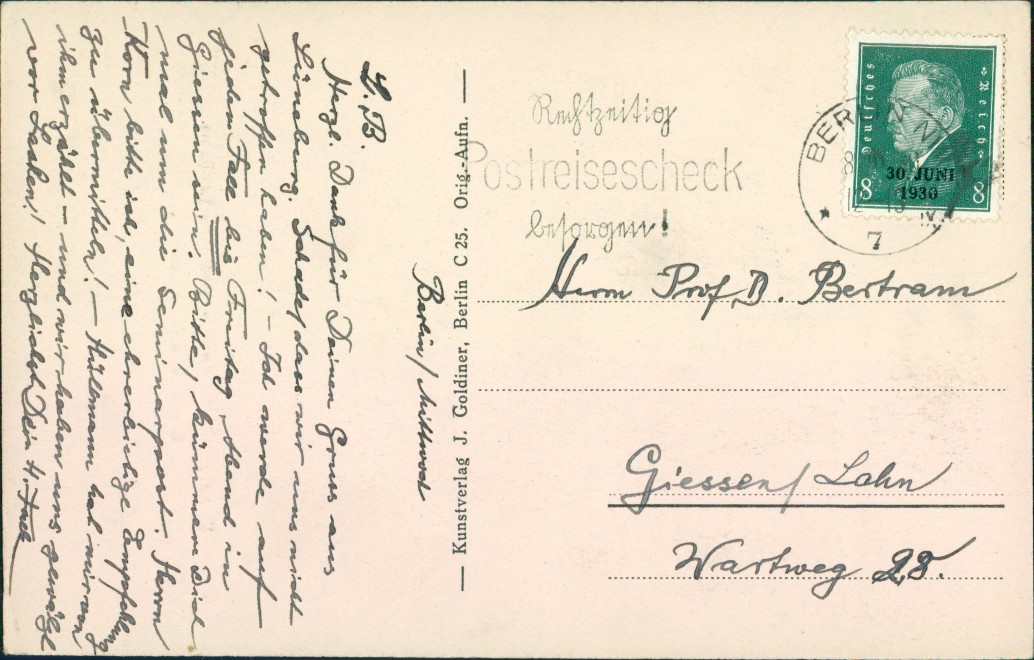 Berlin, Mittwoch
L. B.
Herzl. Dank für Deinen Gruss aus
Lüneburg. Schade, dass wir uns nicht
getroffen haben! – Ich werde auf
jeden Fall bis Freitag Abend in
Giessen sein. Bitte, kümmere Dich
mal um die Seminarpost. Herrn
Korn bitte ich, eine ehrerbietige Empfehlung
zu übermitteln! – Hülsmann hat mir
ihm erzählt – und wir haben uns gewälzt
vor Lachen! Herzlichst Dein H.
Kunstverlag J. Goldiner, Berlin C 25. Orig.-Aufn.
Rechtzeitig
Postreisescheck
besorgen!
BERLIN N
7
Deutsches Reich
30. JUNI
1930
8 8
Herrn Prof. D. Bertram
Giessen/Lahn
Wartweg 28.